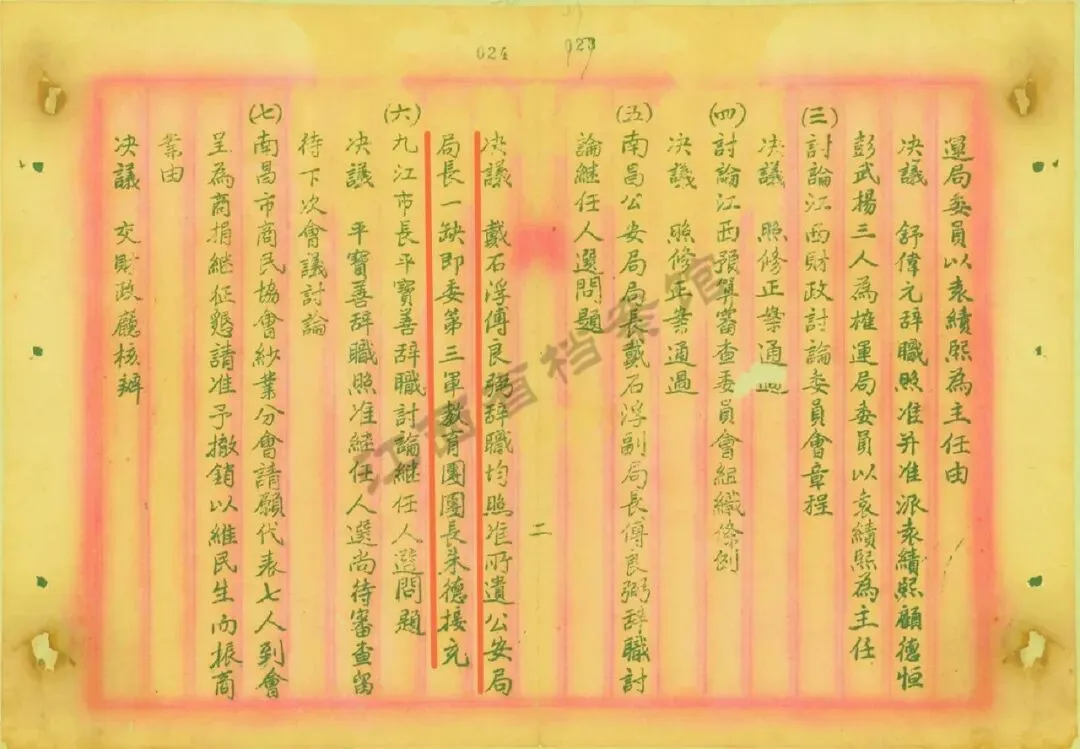 024
023
運局委員以袁績熙為主任由
决議　舒偉元辞職照准并准派袁績熙顧德恒
彭武揚三人為榷運局委員以袁績熙為主任
(三)討論江西財政討論委員會章程
决議　照修正案通過
(四)討論江西預算審查委員會組織條例
决議　照修正案通過
(五)南昌公安局局長戴石浮副局長傅良弼辞職討
論継任人選問題
二
决議　戴石浮傅良弼辞職均照准所遺公安局
局長一缺即委第三軍教育團團長朱德接充
(六)九江市長平寶善辞職討論継任人選問題
决議　平寶善辞職照准継任人選尚待審查留
待下次會議討論
(七)南昌市商民協會紗業分會請願代表七人到會
呈為商捐継征懇請准予撤銷以維民生而振商
業由
决議　交財政廳核辦
江西省档案馆